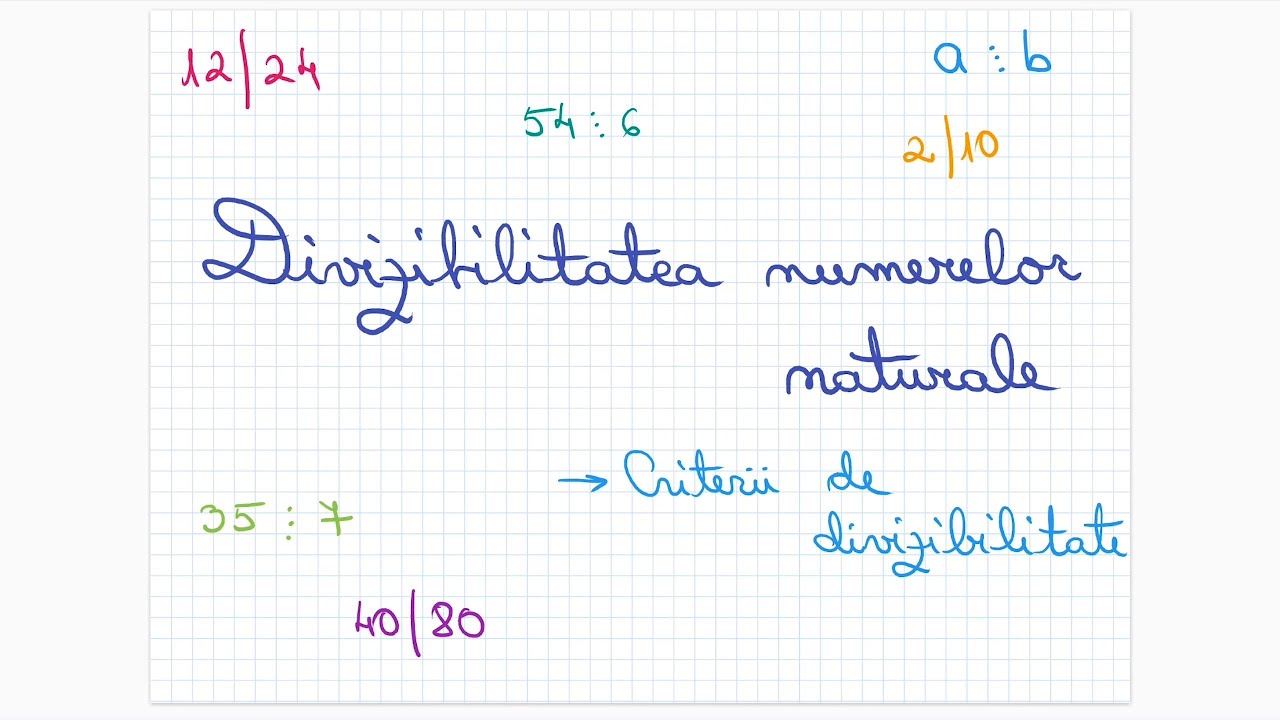 12|24
a ⋮ b
54 ⋮ 6
2|10
Divizibilitatea numerelor
naturale
→ Criterii de
divizibilitate
35 ⋮ 7
40|80